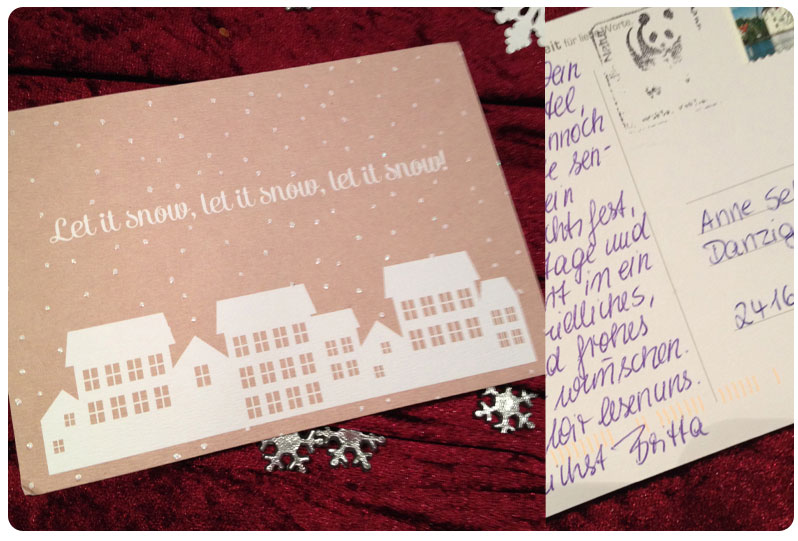 Let it snow, let it snow, let it snow!
eit für liebe Worte.
Dein
tel,
nnoch
e sen-
ein
chtsfest,
tage und
tt in ein
iedliches,
d frohes
wünschen.
Wir lesen uns.
lichst Britta
Anne Se
Danzig
2416